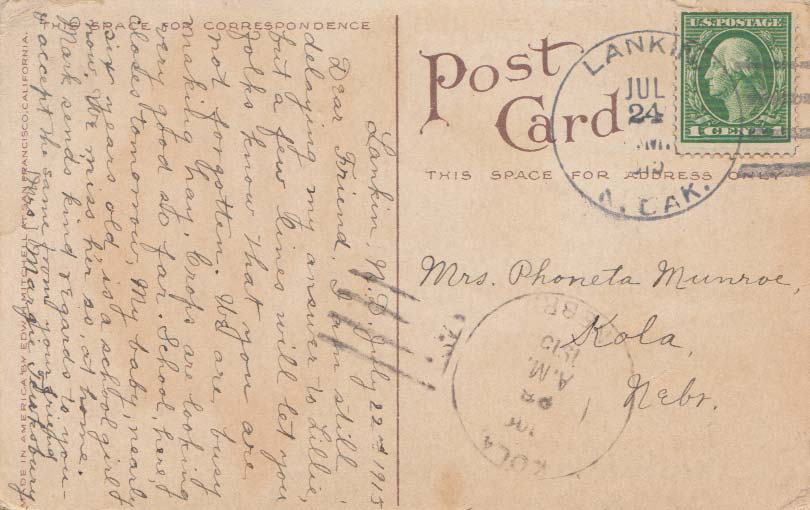 THIS SPACE FOR CORRESPONDENCE
Lankin, N.D. July 22nd 1915
Dear Friend, I am still
delaying my answer to Lillie,
but a few lines will let you
folks know that you are
not forgotten. We are busy
making hay. Crops are looking
very good so far. School here,
closes tomorrow, My baby, nearly
six years old, is a school girl
now. We miss her so, at home.
Mark sends kind regards to you-
& accept the same from your friend
Mrs. Margie
MADE IN AMERICA BY EDW. H. MITCHELL, SAN FRANCISCO, CALIFORNIA.
Post
Card
THIS SPACE FOR ADDRESS ONLY
U.S. POSTAGE
1 CENT 1
LANKIN
JUL
24
M.
N. DAK.
Mrs. Phoneta Munroe,
Kola,
Nebr.
KOLA,
NEBR.
A.M.
1915